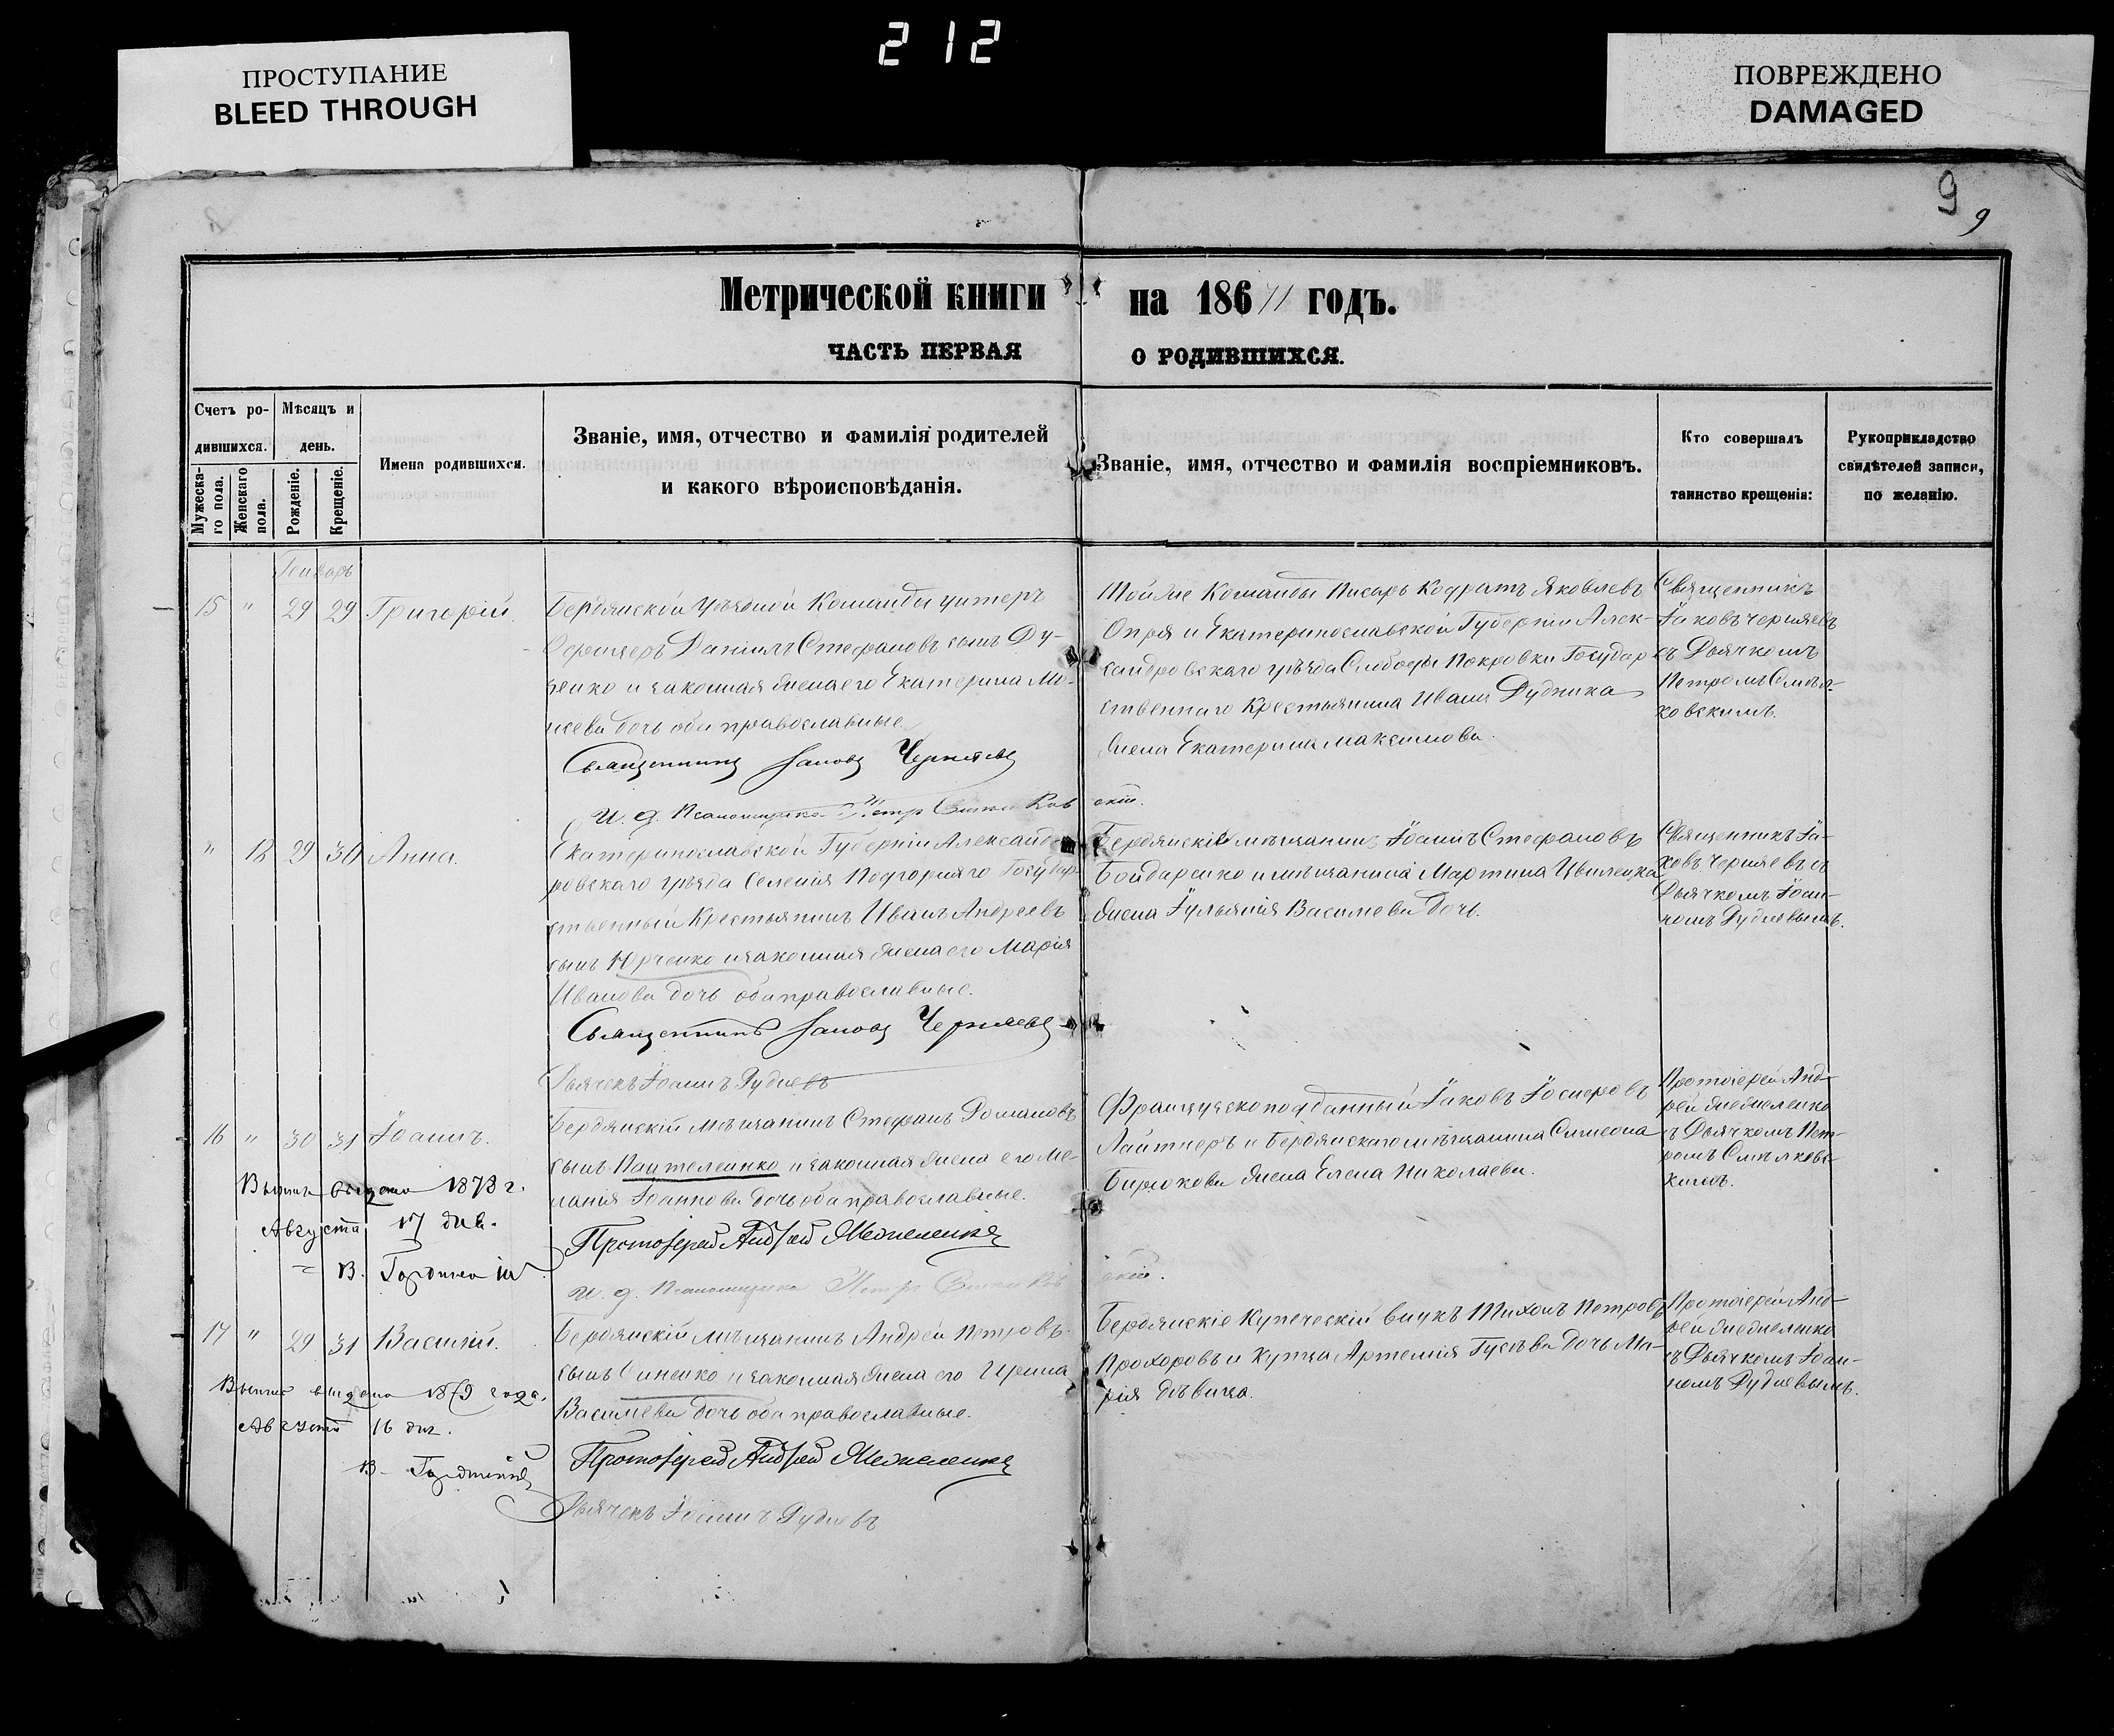 212
ПРОСТУПАНИЕ
BLEED THROUGH
ПОВРЕЖДЕНО
DAMAGED
9
9
Метрической книги на 18671 годъ.
ЧАСТЬ ПЕРВАЯ О РОДИВШИХСЯ.
Счетъ ро-
дившихся.
Мужеска-
го пола.
Женскаго
пола.
Мѣсяцъ и
день.
Рожденіе.
Крещеніе.
Имена родившихся.
Званіе, имя, отчество и фамилія родителей
и какого вѣроисповѣданія.
Званіе, имя, отчество и фамилія воспріемниковъ.
Кто совершалъ
таинство крещенія:
Рукоприкладство
свидѣтелей записи,
по желанію.
Генварь
15 " 29 29 Григорій.
Бердянской Уѣздной Команды унтеръ
Офицеръ Даніилъ Стефановъ сынъ Ду-
ченко и законная жена его Екатерина Мо-
сеева дочь оба православные.
Священникъ Іаковъ Черняевъ
И. д. Псаломщика Петръ
скій.
Тойже Команды Писарь Кодратъ Яковлевъ
Опря и Екатеринославской Губерніи Алек-
сандровскаго уѣзда Слободы Покровки Государ-
ственнаго Крестьянина Ивана Дудника
жена Екатерина Максимова.
Священникъ
Іаковъ Черняевъ
съ Дьячкомъ
Петромъ
ковскимъ.
" 18 29 30 Анна.
Екатеринославской Губерніи Александ-
ровскаго уѣзда Селенія Подгорняго Государ-
ственный Крестьянинъ Иванъ Андреевъ
сынъ Юрченко и законная жена его Марія
Иванова дочь оба православные.
Священникъ Іаковъ Черняевъ
Дьячекъ Іоаннъ Рудневъ
Бердянскій мѣщанинъ Іоаннъ Стефановъ
Бондаренко и мѣщанина Мартина
жена Іульянія Васильева дочь.
Священникъ Іа-
ковъ Черняевъ съ
Дьячкомъ Іоан-
номъ Рудневымъ.
16 " 30 31 Іоаннъ.
Выпись выдана 1873 г.
Августа 17 дня.
В.
Бердянскій мѣщанинъ Стефанъ Романовъ
сынъ Пантелеенко и законная жена его Ме-
ланія Іоаннова дочь оба православные.
Протоіерей Андрей
И. д. Псаломщика Петръ
скій.
Французскоподданный Іаковъ Іосифовъ
Лайтнеръ и Бердянскаго мѣщанина Симеона
Бирюкова жена Елена Николаева.
Протоіерей Анд-
рей
съ Дьячкомъ Пет-
ромъ
17 " 29 31 Василій.
Выпись выдана года.
Августа 16 дня.
В.
Бердянскій мѣщанинъ Андрей Петровъ
сынъ Синенко и законная жена его Ирина
Васильева дочь оба православные.
Протоіерей Андрей
Дьячекъ Іоаннъ Рудневъ
Бердянскіе Купеческій внукъ Тихонъ Петровъ
Прохоровъ и Купца Артемія Гусева дочь Ма-
рія дѣвица.
Протоіерей Анд-
рей
съ Дьячкомъ Іоан-
номъ Рудневымъ.